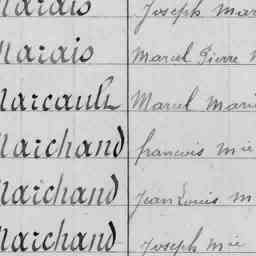 Marais Joseph Mar
Marais Marcel Pierre M
Marcault Marcel Mari
Marchand francois mie
Marchand Jean Louis m
Marchand Joseph mie